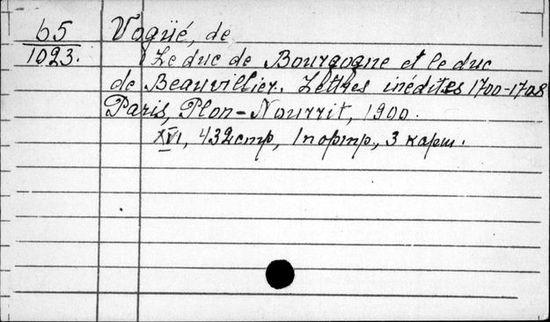 65
1023.
Vogüé, de
Le duc de Bourgogne et le duc
de Beauvillier. Lettres inédites 1700-1708
Paris, Plon-Nourrit, 1900.
XVI, 432 стр, 1 портр., 3 карт.